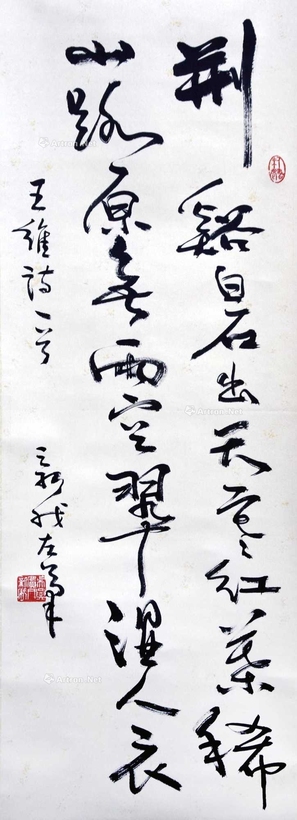 荆谿白石出天寒红葉稀
山路原無雨空翠湿人衣
王維詩一首
新我左筆